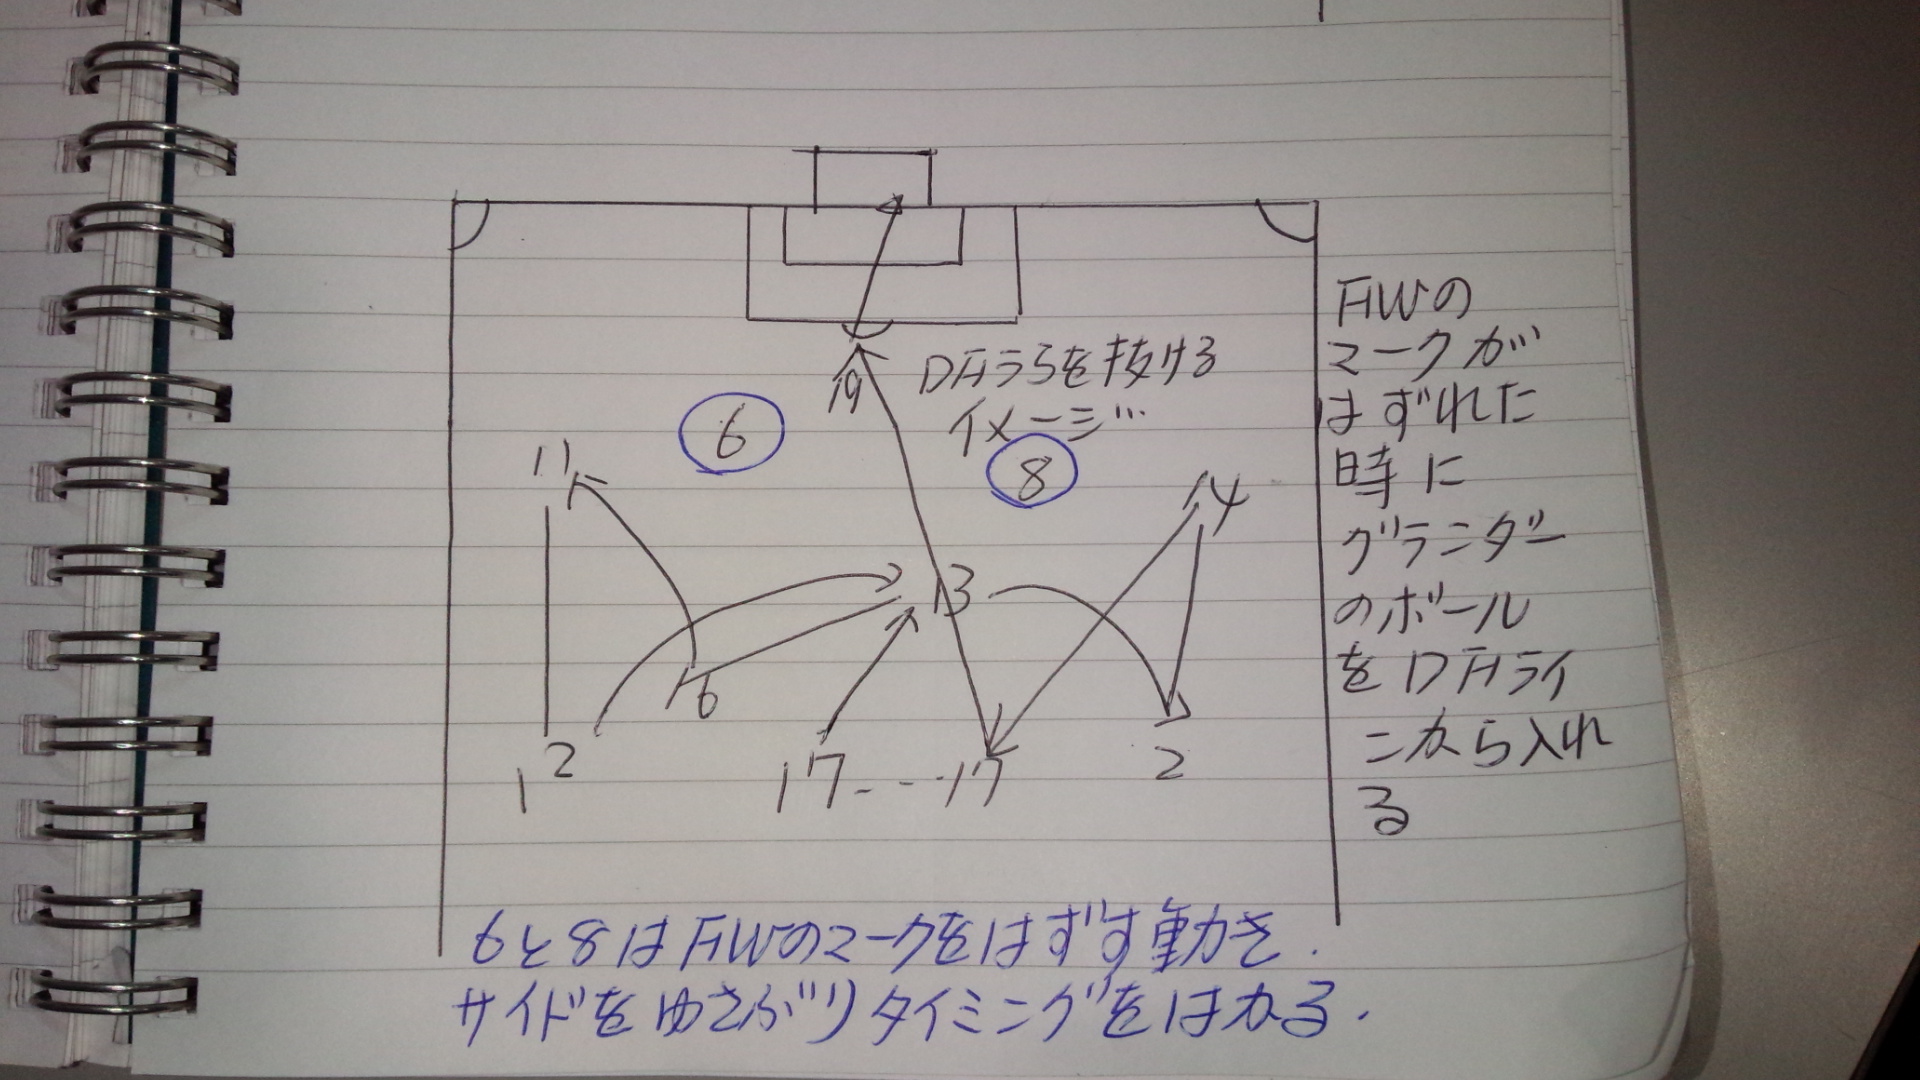 19
DFラうを抜ける
イメージ…
6
8
11
14
13
16
12
17---17
2
FWの
マークが
はずれた
時に
グランダー
のボール
をDFライ
ンから入れ
る
6と8はFWのマークをはずす動き.
サイドをゆさぶりタイミングをはかる.